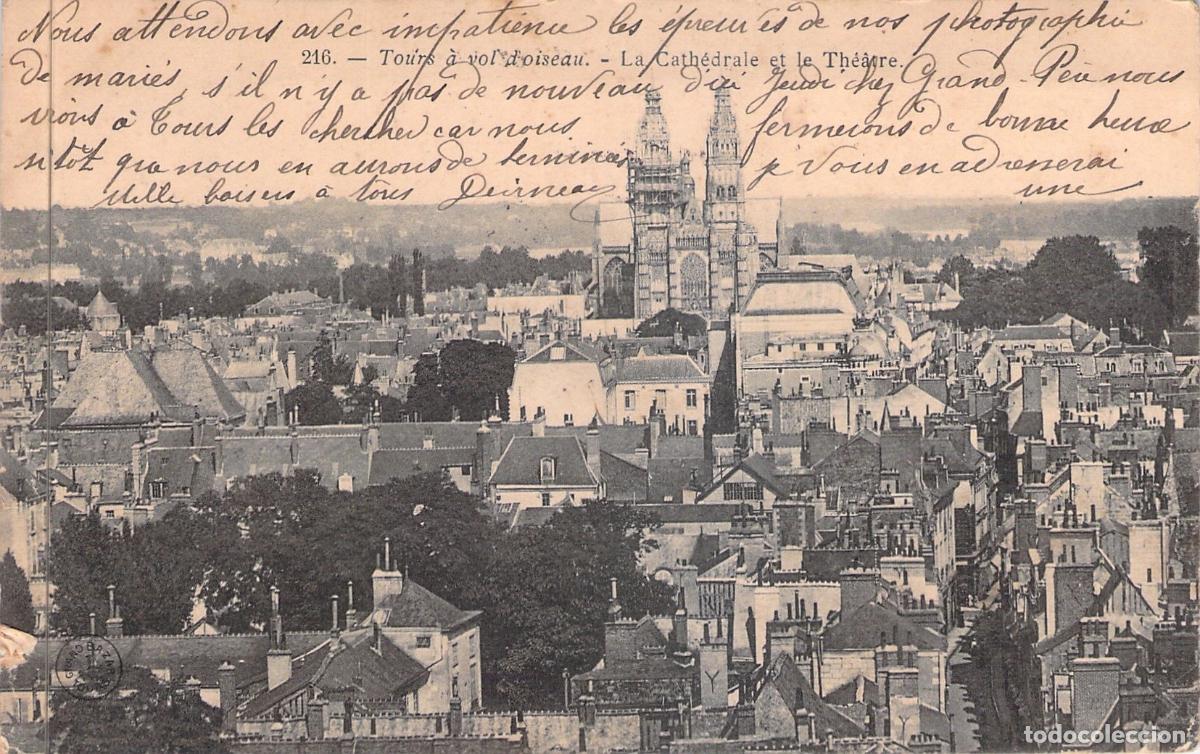 Nous attendons avec impatience les épreuves de nos photographie
216. — Tours à vol d'oiseau. - La Cathédrale et le Théâtre.
de mariés, s'il n'y a pas de nouveau d'ici Jeudi chez Grand-Père nous
irons à Tours les chercher car nous fermerons de bonne heure
tôt que nous en aurons de terminées je Vous en adresserai
Mille baisers à tous une
todocoleccion